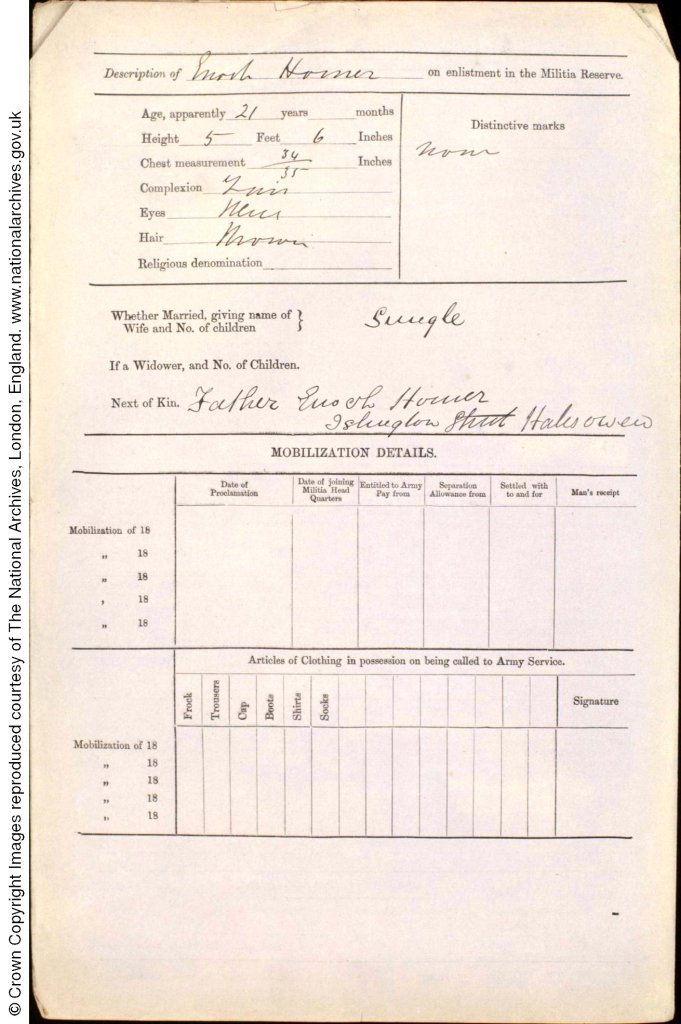 © Crown Copyright Images reproduced courtesy of The National Archives, London, England. www.nationalarchives.gov.uk
Description of Enoch Homer on enlistment in the Militia Reserve.
Age, apparently 21 years months
Height 5 Feet 6 Inches
Chest measurement 34/35 Inches
Complexion Fair
Eyes Blue
Hair Brown
Religious denomination
Distinctive marks
None
Whether Married, giving name of } Single
Wife and No. of children
If a Widower, and No. of Children.
Next of Kin. Father Enoch Homer
Islington Street Halesowen
MOBILIZATION DETAILS.
Date of Proclamation Date of joining Militia Head Quarters Entitled to Army Pay from Separation Allowance from Settled with to and for Man's receipt
Mobilization of 18
„ 18
„ 18
, 18
„ 18
Articles of Clothing in possession on being called to Army Service.
Frock Trousers Cap Boots Shirts Socks Signature
Mobilization of 18
„ 18
„ 18
„ 18
„ 18